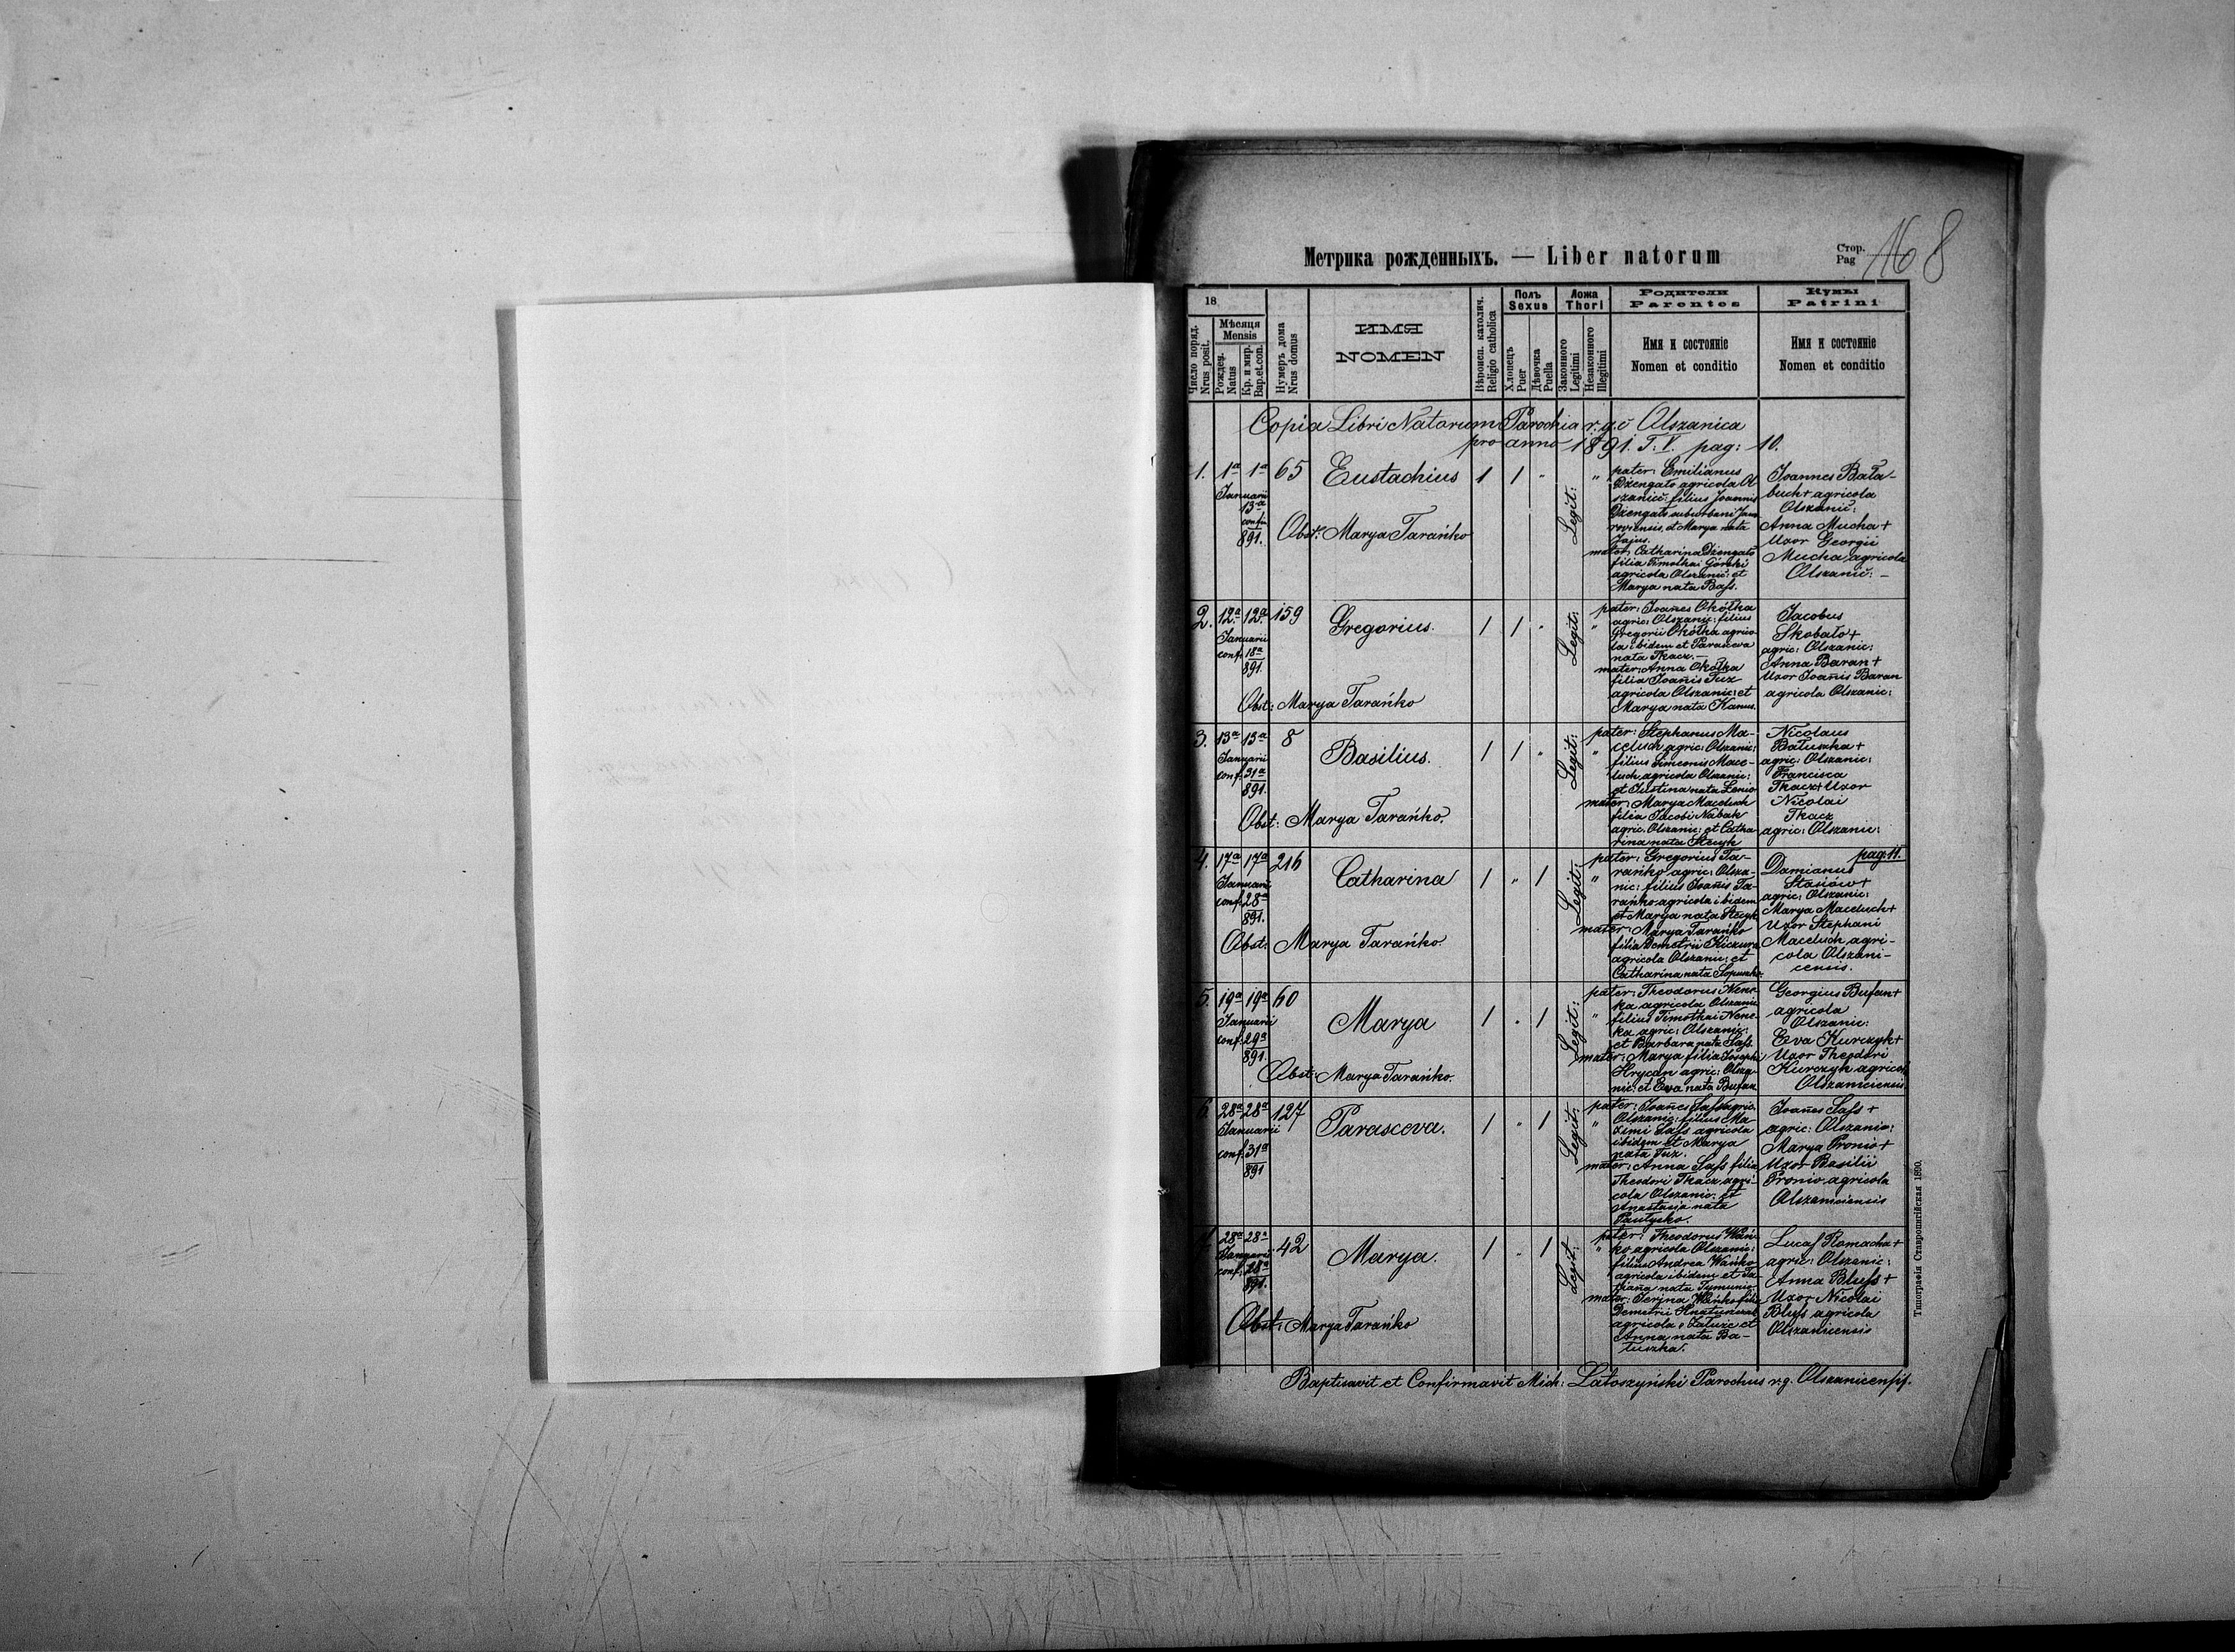 Метрика рожденныхъ. — Liber natorum
Стор.
Pag 168
18
Число поряд.
Nrus posit.
Мѣсяця
Mensis
Рожден.
Natus
Кр. и мир.
Bap.et.con.
Нумеръ дома
Nrus domus
ИМЯ
NOMEN
Вѣроисп. католич.
Religio catholica
Полъ
Sexus
Хлопецъ
Puer
Дѣвочка
Puella
Ложа
Thori
Законного
Legitimi
Незаконного
Illegitimi
Родители
Parentes
Имя и состояніе
Nomen et conditio
Кумы
Patrini
Имя и состояніе
Nomen et conditio
Copia Libri Natorum Parochia r.g.c Olszanica
pro anno 1891. T. V. pag: 10.
1. 1a 1a 65 Eustachius 1 1 "
Januarii
13a
conf.
891.
Obst: Marya Tarańko
Legit: "
pater: Emilianus
Dzengało agricola Ol
szanic: filius Joannis
Dzengało suburbani Jawo
roviensis, et Marya nata
Jajus.
mater: Catharina Dzengało
filia Timothai Górski
agricola Olszanic: et
Marya nata Bass.
Joannes Bała-
buch+ agricola
Olszanic:
Anna Mucha+
Uxor Georgii
Mucha, agricola
Olszanic: –
2. 12a 12a 159 Gregorius. 1 1 "
Januarii
conf. 18a
891.
Obst: Marya Tarańko
Legit: "
pater: Joanes Okółka
agric: Olszanic: filius
Gregorii Okółka agrico-
la ibidem et Parasceva
nata Tkacz. –
mater: Anna Okółka
filia Joanis Tuz
agricola Olszanic: et
Marya nata Kanus.
Jacobus
Skobało+
agric: Olszanic:
Anna Baran+
Uxor Joanis Baran
agricola Olszanic:
3. 13a 13a 8 Basilius. 1 1 "
Januarii
conf. 31a
891.
Obst: Marya Tarańko.
Legit: "
pater: Stephanus Ma-
celuch agric: Olszanic:
filius Simeonis Mace-
luch, agricola Olszanic:
et Justina nata Lenio
mater: Marya Maceluch
filia Jacobi Nabak
agric: Olszanic: et Catha-
rina nata Stecyk
Nicolaus
Batuszka+
agric: Olszanic:
Francisca
Tkacz+ Uxor
Nicolai
Tkacz
agric: Olszanic:
4. 17a 17a 216 Catharina 1 " 1
Januarii
conf. 28a
891.
Obst: Marya Tarańko
Legit: "
pater: Gregorius Ta-
rańko, agric: Olsza-
nic: filius Joanis Ta-
rańko, agricola ibidem
et Marya nata Stecyk
mater: Marya Tarańko
filia Demetrii Kiczura
agricola Olszanic: et
Catharina nata Łopuszko.
pag: 11.
Damianus
Stasiów+
agric: Olszanic:
Marya Maceluch+
Uxor Stephani
Maceluch, agri-
cola Olszani-
censis.
5. 19a 19a 60 Marya 1 " 1
Januarii
conf. 29a
891.
Obst: Marya Tarańko.
Legit: "
pater: Theodorus Nene-
ka agricola Olszanic
filius Timothai Nene-
ka agric: Olszanic:
et Barbara nata Sass.
mater: Marya filia Josephi
Hrycan agric: Olsza-
nic: et Eva nata Bufan
Georgius Bufan+
agricola
Olszanic:
Eva Kurczyk+
Uxor Theodori
Kurczyk agricol.
Olszaniciensis
6 28a 28a 127 Parasceva. 1 " 1
Januarii
conf. 31a
891
Legit: "
pater: Joanes Sass agric:
Olszanic: filius Ma-
ximi Sass agricola
ibidem et Marya
nata Tuz.
mater: Anna Sass filia
Theodori Tkacz, agri-
cola Olszanic: et
Anastasia nata
Pautysko.
Joanes Sass+
agric: Olszanic:
Marya Pronio+
Uxor Basilii
Pronio, agricola
Olszaniciensis
7 28a 28a 42 Marya. 1 " 1
Januarii
conf. 28a
891.
Obst: Marya Tarańko
Legit: "
pater: Theodorus Wań-
ko, agricola Olszanic:
filius Andrea Wańko
agricola ibidem et Ta-
tiana nata
mater: Wańko filia
Demetrii
agricola e Załuże et
Anna nata Ba-
tuszka.
Lucas Romacha+
agric: Olszanic:
Anna Bluss+
Uxor Nicolai
Bluss agricola
Olszanicensis
Baptisavit et Confirmavit Mich: Latoszyński Parochus r.g. Olszanicensis.
Типографія Ставропигійская 1890.